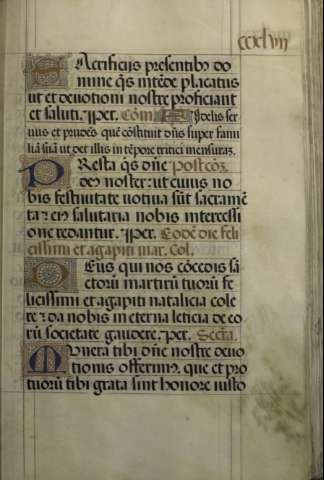 ccxlvii
Sacrificijs presentibꝫ do
mine q̄s intēde placatus
ut et deuotioni nostre proficiant
et saluti. ꝑper. Cōm̄. Fidelis ser
uus et prudēs quē cōstituit dn̄s super fami
liā suā ut det illis in tēpore tritici mensurā.
Presta q̄s dn̄e Postcōꝫ.
deus noster: ut cuius no
bis festiuitate uotiua sūt sacramē
ta et eī salutaria nobis intercessi
one reddantur. ꝑper. Eodē die feli
cissimi et agapiti mar. Col.
Deus qui nos cōcedis sā
ctorū martirū tuorū fe
licissimi et agapiti natalicia cole
re: da nobis in eterna leticia de eo
rū societate gaudere. ꝑper. Secrā.
Munera tibi dn̄e nostre deuo
tionis offerimꝰ. que et pro
tuorū tibi grata sint honore iusto